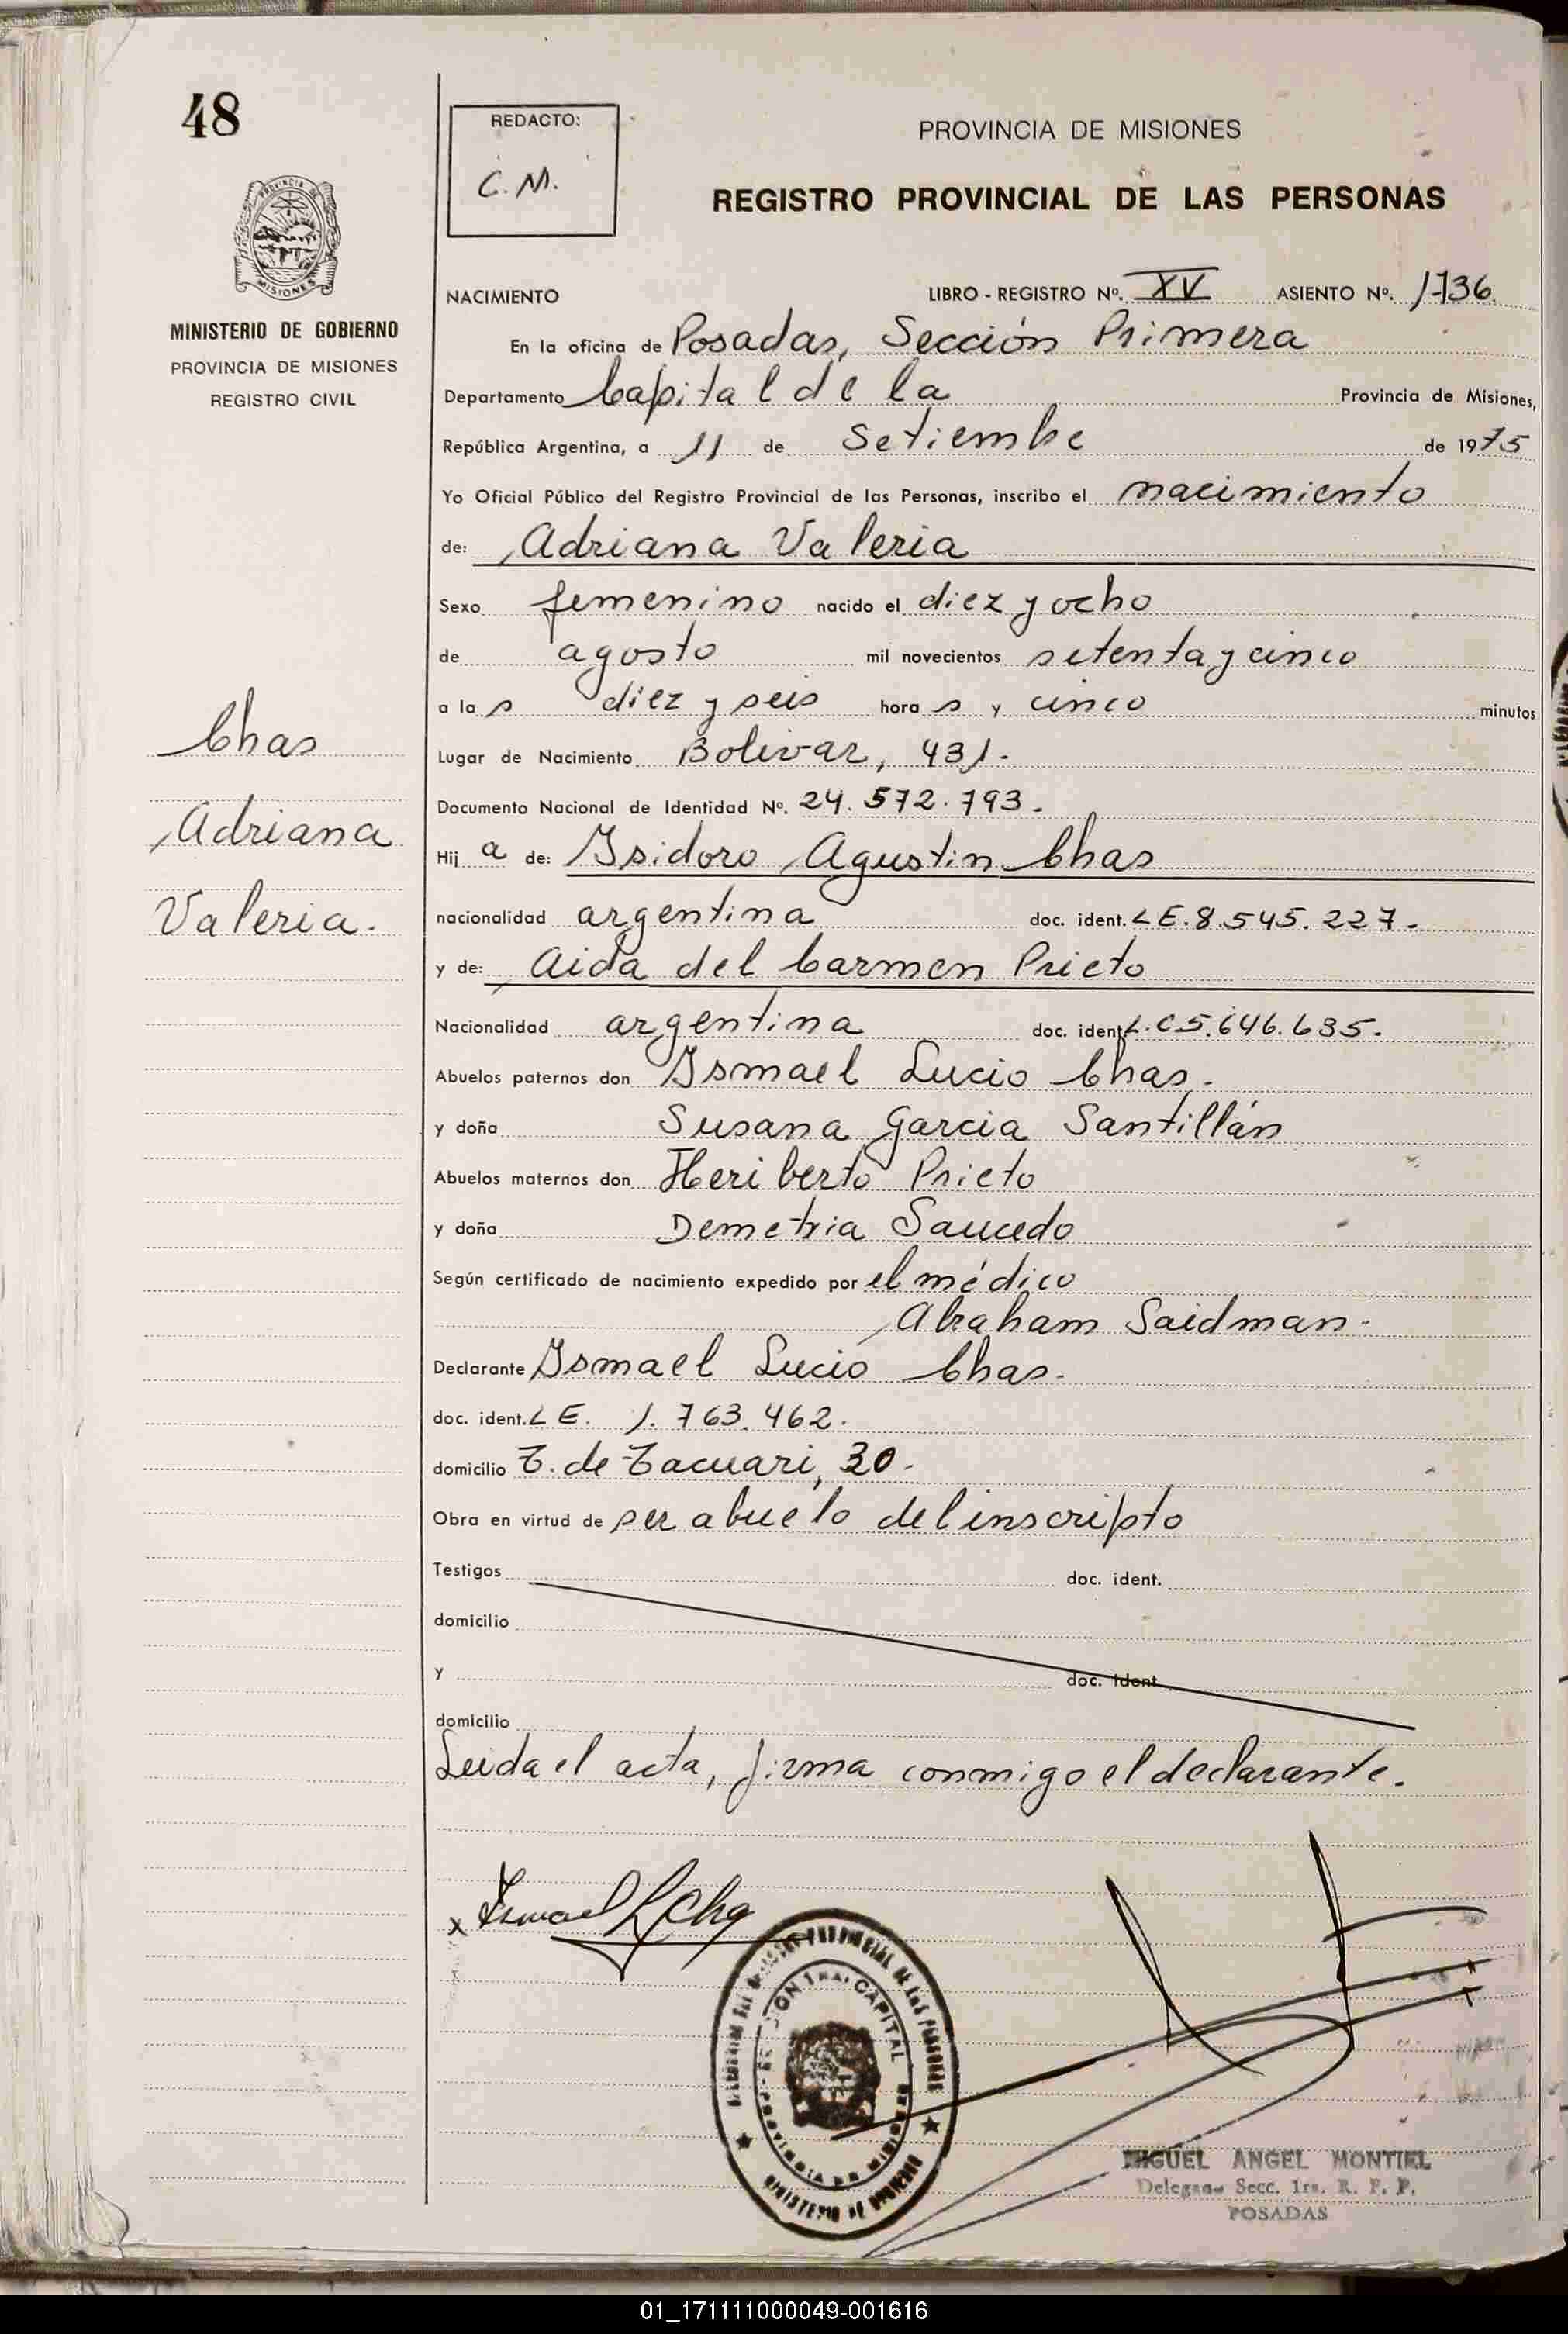 48
REDACTO:
C. M.
PROVINCIA DE MISIONES
REGISTRO PROVINCIAL DE LAS PERSONAS
MISIONES
MINISTERIO DE GOBIERNO
PROVINCIA DE MISIONES
REGISTRO CIVIL
NACIMIENTO LIBRO - REGISTRO Nº. XV ASIENTO Nº. 1736
En la oficina de Posadas, Sección Primera
Departamento Capital de la Provincia de Misiones,
República Argentina, a 11 de Setiembre de 1975
Yo Oficial Público del Registro Provincial de las Personas, inscribo el nacimiento
de: Adriana Valeria
Sexo femenino nacido el diez y ocho
de agosto mil novecientos setenta y cinco
a las diez y seis horas y cinco minutos
Chas
Adriana
Valeria.
Lugar de Nacimiento Bolivar, 431.
Documento Nacional de Identidad Nº. 24.572.793.
Hija de: Isidoro Agustin Chas
nacionalidad argentina doc. ident. LE.8.545.227.
y de: Aida del Carmen Prieto
Nacionalidad argentina doc. ident. L.C5.646.635.
Abuelos paternos don Ismael Lucio Chas.
y doña Susana Garcia Santillán
Abuelos maternos don Heriberto Prieto
y doña Demetria Saucedo
Según certificado de nacimiento expedido por el médico
Abraham Saidman.
Declarante Ismael Lucio Chas.
doc. ident. LE. 1.763.462.
domicilio T. de Tacuari, 30.
Obra en virtud de ser abuelo del inscripto
Testigos doc. ident.
domicilio
y doc. ident.
domicilio
Leida el acta, firma conmigo el declarante.
x Ismael L Chas
MIGUEL ANGEL MONTIEL
Delegado Secc. 1ra. R. P. P.
POSADAS
01_171111000049-001616